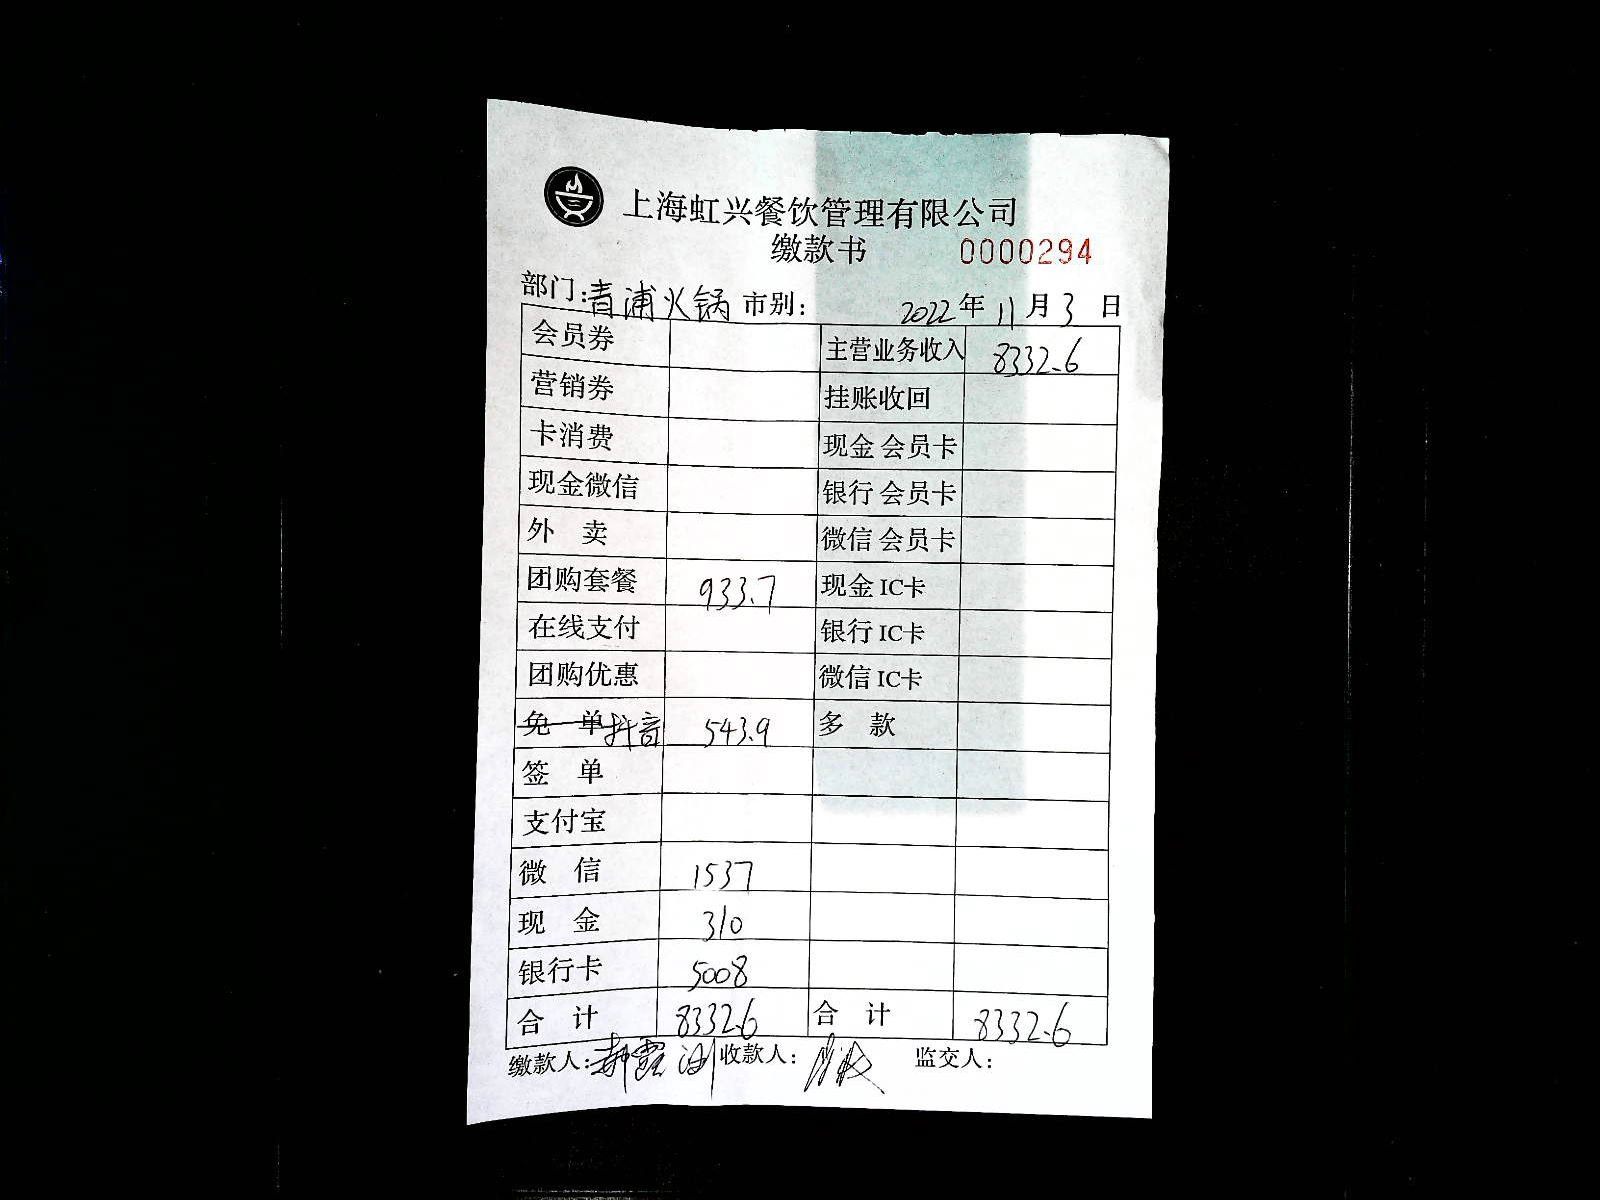 上海虹兴餐饮管理有限公司
缴款书 0000294
部门:青浦火锅 市别: 2022年11月3日
会员券 主营业务收入 8332.6
营销券 挂账收回
卡消费 现金 会员卡
现金微信 银行 会员卡
外 卖 微信 会员卡
团购套餐 933.7 现金 IC卡
在线支付 银行 IC卡
团购优惠 微信 IC卡
免 单 抖音 543.9 多 款
签 单
支付宝
微 信 1537
现 金 310
银行卡 5008
合 计 8332.6 合 计 8332.6
缴款人: 收款人: 监交人: